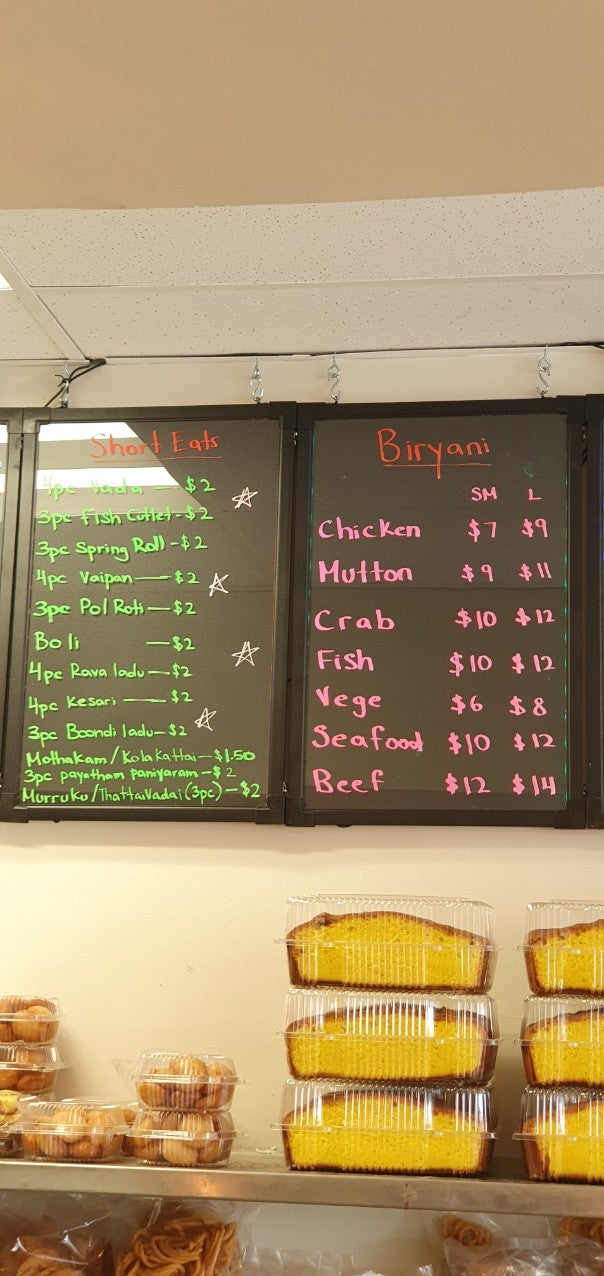 Short Eats
4pc Vada — $2
3pc Fish Cutlet - $2
3pc Spring Roll - $2
4pc Vaipan — $2
3pc Pol Roti — $2
Boli — $2
4pc Rava ladu — $2
4pc Kesari — $2
3pc Boondi ladu — $2
Mothakam / Kolakattai — $1.50
3pc payatham paniyaram — $2
Murruku / Thattaivadai (3pc) — $2
Biryani
SM L
Chicken $7 $9
Mutton $9 $11
Crab $10 $12
Fish $10 $12
Vege $6 $8
Seafood $10 $12
Beef $12 $14